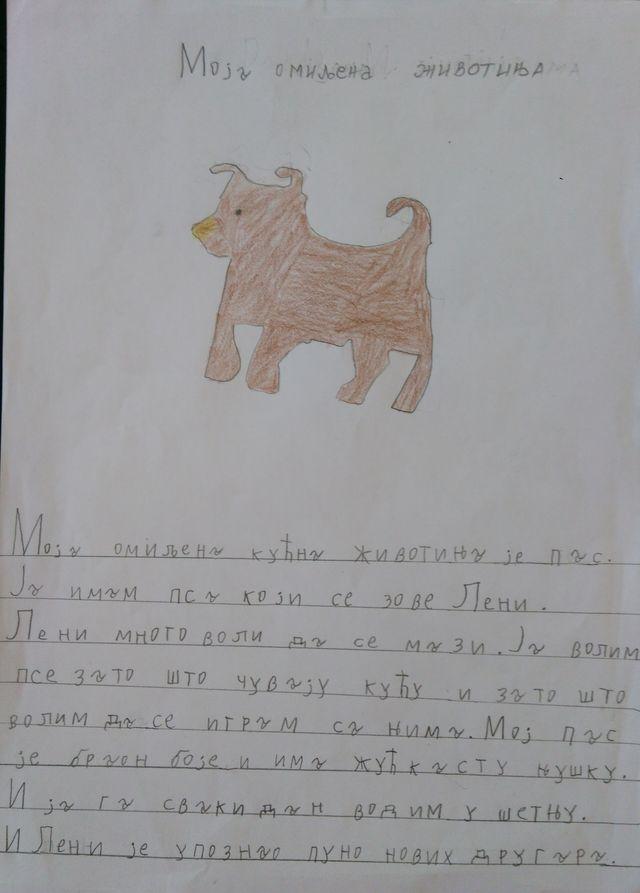 Моја омиљена животиња
Моја омиљена кућна животиња је пас.
Ја имам пса који се зове Лени.
Лени много воли да се мази. Ја волим
псе зато што чувају кућу и зато што
волим да се играм са њима. Мој пас
је браон боје и има жућкасту њушку.
И ја га сваки дан водим у шетњу.
И Лени је упознао пуно нових другара.